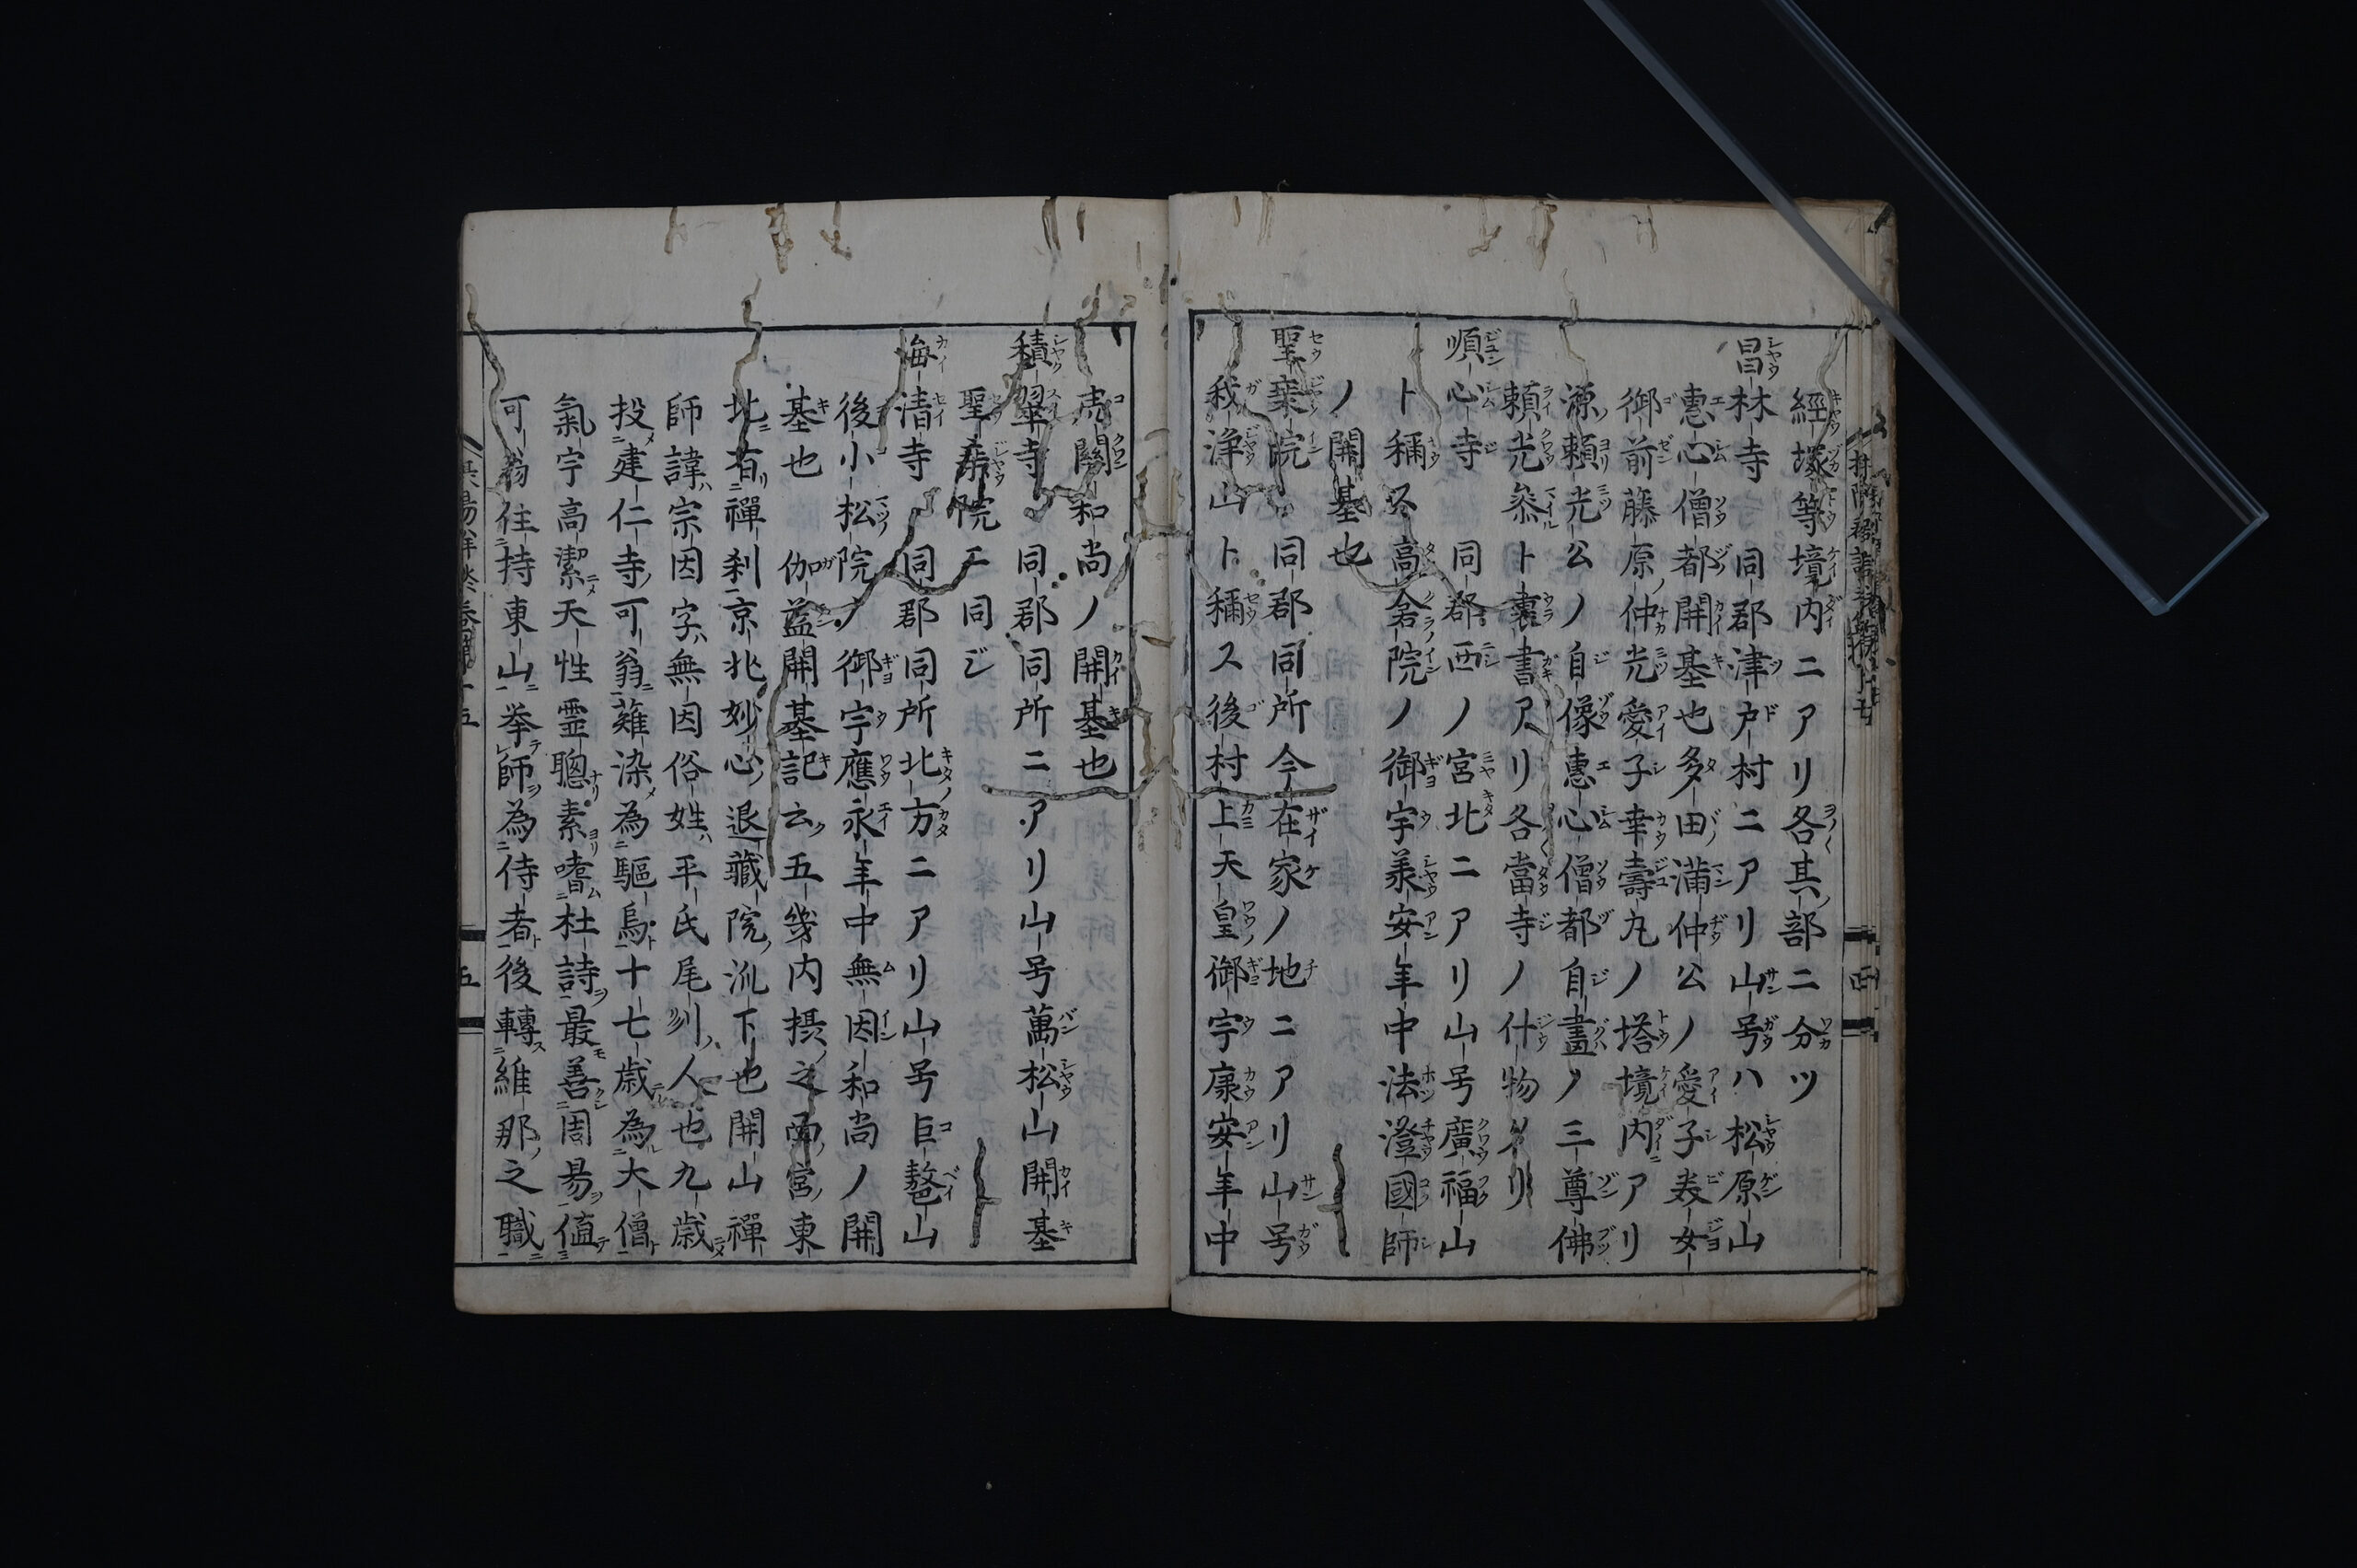 經塚等境内ニアリ各其部ニ分ツ
昌林寺 同郡津戸村ニアリ山号ハ松原山
惠心僧都開基也多田満仲公ノ愛子美女
御前藤原ノ仲光愛子幸壽丸ノ塔境内ニアリ
源ノ頼光公ノ自像惠心僧都自畫ノ三尊佛
頼光叅ト裏書アリ各當寺ノ什物ナリ
順心寺 同郡西ノ宮北ニアリ山号廣福山
ト稱ス高倉院ノ御宇美安年中法澄國師
ノ開基也
聖乗院 同郡同所今在家ノ地ニアリ山号
我淨山ト稱ス後村上天皇ノ御宇康安年中
虎關和尚ノ開基也
積翠寺 同郡同所ニアリ山号萬松山開基
聖乗院ニ同ジ
海清寺 同郡同所北ノ方ニアリ山号巨鼇山
後小松院ノ御宇應永年中無因和尚ノ開
基也 伽藍開基記云五畿内摂之西宮東
北有禪刹京兆妙心退藏院派下也開山禪
師諱宗因字無因俗姓平氏尾刕人也九歳
投建仁寺可翁薙染為驅烏十七歳為大僧
氣宇高潔天性霊聰素嗜杜詩最善周易値
可翁住持東山挙師為侍者後轉維那之職